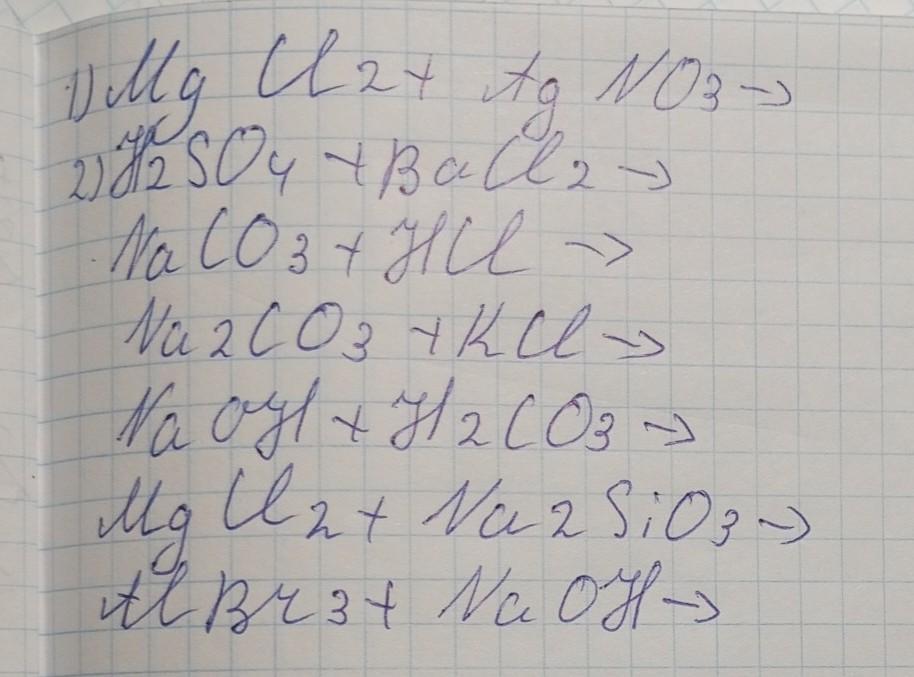 1) MgCl2 + AgNO3 →
2) H2SO4 + BaCl2 →
NaCO3 + HCl →
Na2CO3 + KCl →
NaOH + H2CO3 →
MgCl2 + Na2SiO3 →
AlBr3 + NaOH →